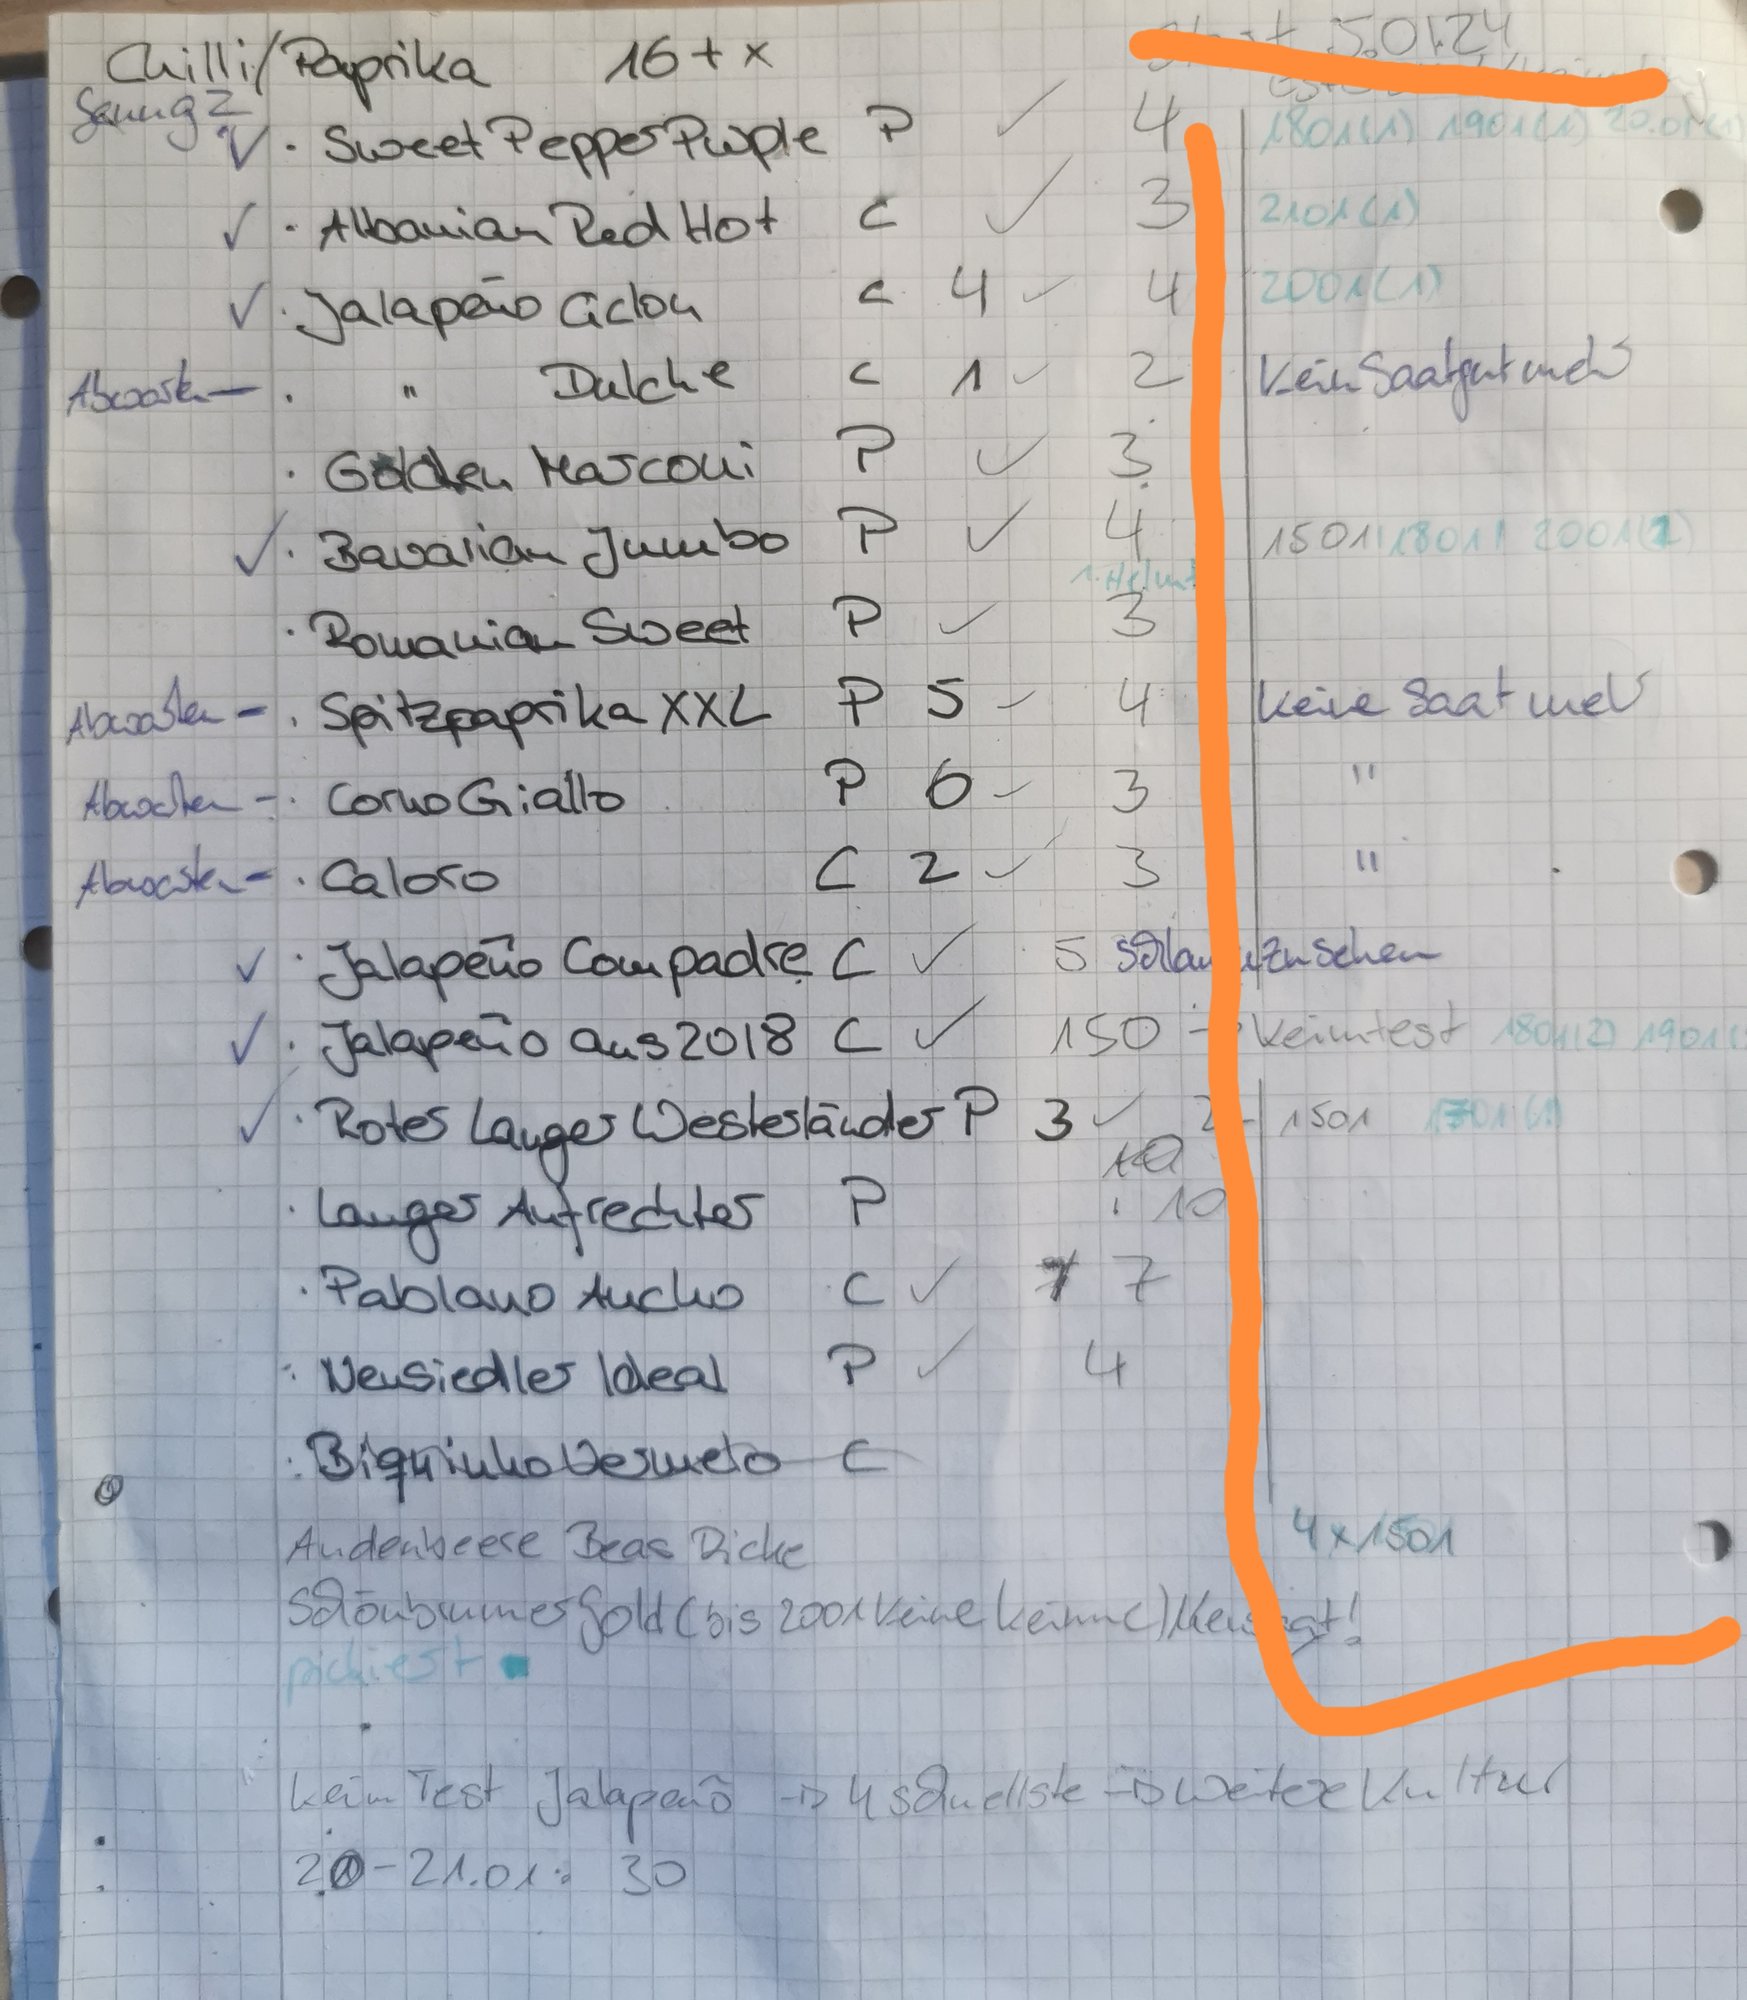 Chilli/Paprika 16 + x 5.01.24
✓ · Sweet Pepper Purple P ✓ 4 1801(1) 1901(1) 20.01(1)
✓ · Albanian Red Hot C ✓ 3 2101(1)
✓ · Jalapeño Ciclon C 4 ✓ 4 2001(1)
Abwarten – · " Dulche C 1 ✓ 2 Kein Saatgut mehr
· Golden Marconi P ✓ 3
✓ · Bavarian Jumbo P ✓ 4 1501! 1801! 2001(2)
· Romanian Sweet P ✓ 3
Abwarten – · Spitzpaprika XXL P 5 ✓ 4 Keine Saat mehr
Abwarten – · Corno Giallo P 6 ✓ 3 "
Abwarten – · Caloro C 2 ✓ 3 "
✓ · Jalapeño Compadre C ✓ 5 zu sehen
✓ · Jalapeño aus 2018 C ✓ 150 → Keimtest 1801(2) 1901(
✓ · Roter Langer Westerländer P 3 ✓ 2 1501
· Langer Aufrechter P 10
· Pablano Ancho C ✓ 7
· Neusiedler Ideal P ✓ 4
· Biquinho Vermelo C
Andenbeere Beas Dicke 4 x 1501
Schönbrunner Gold (bis 2001 Keine Keime)
pickiest
KeimTest Jalapeño → 4 schnellste → weitere Kultur
20 – 21.01: 30